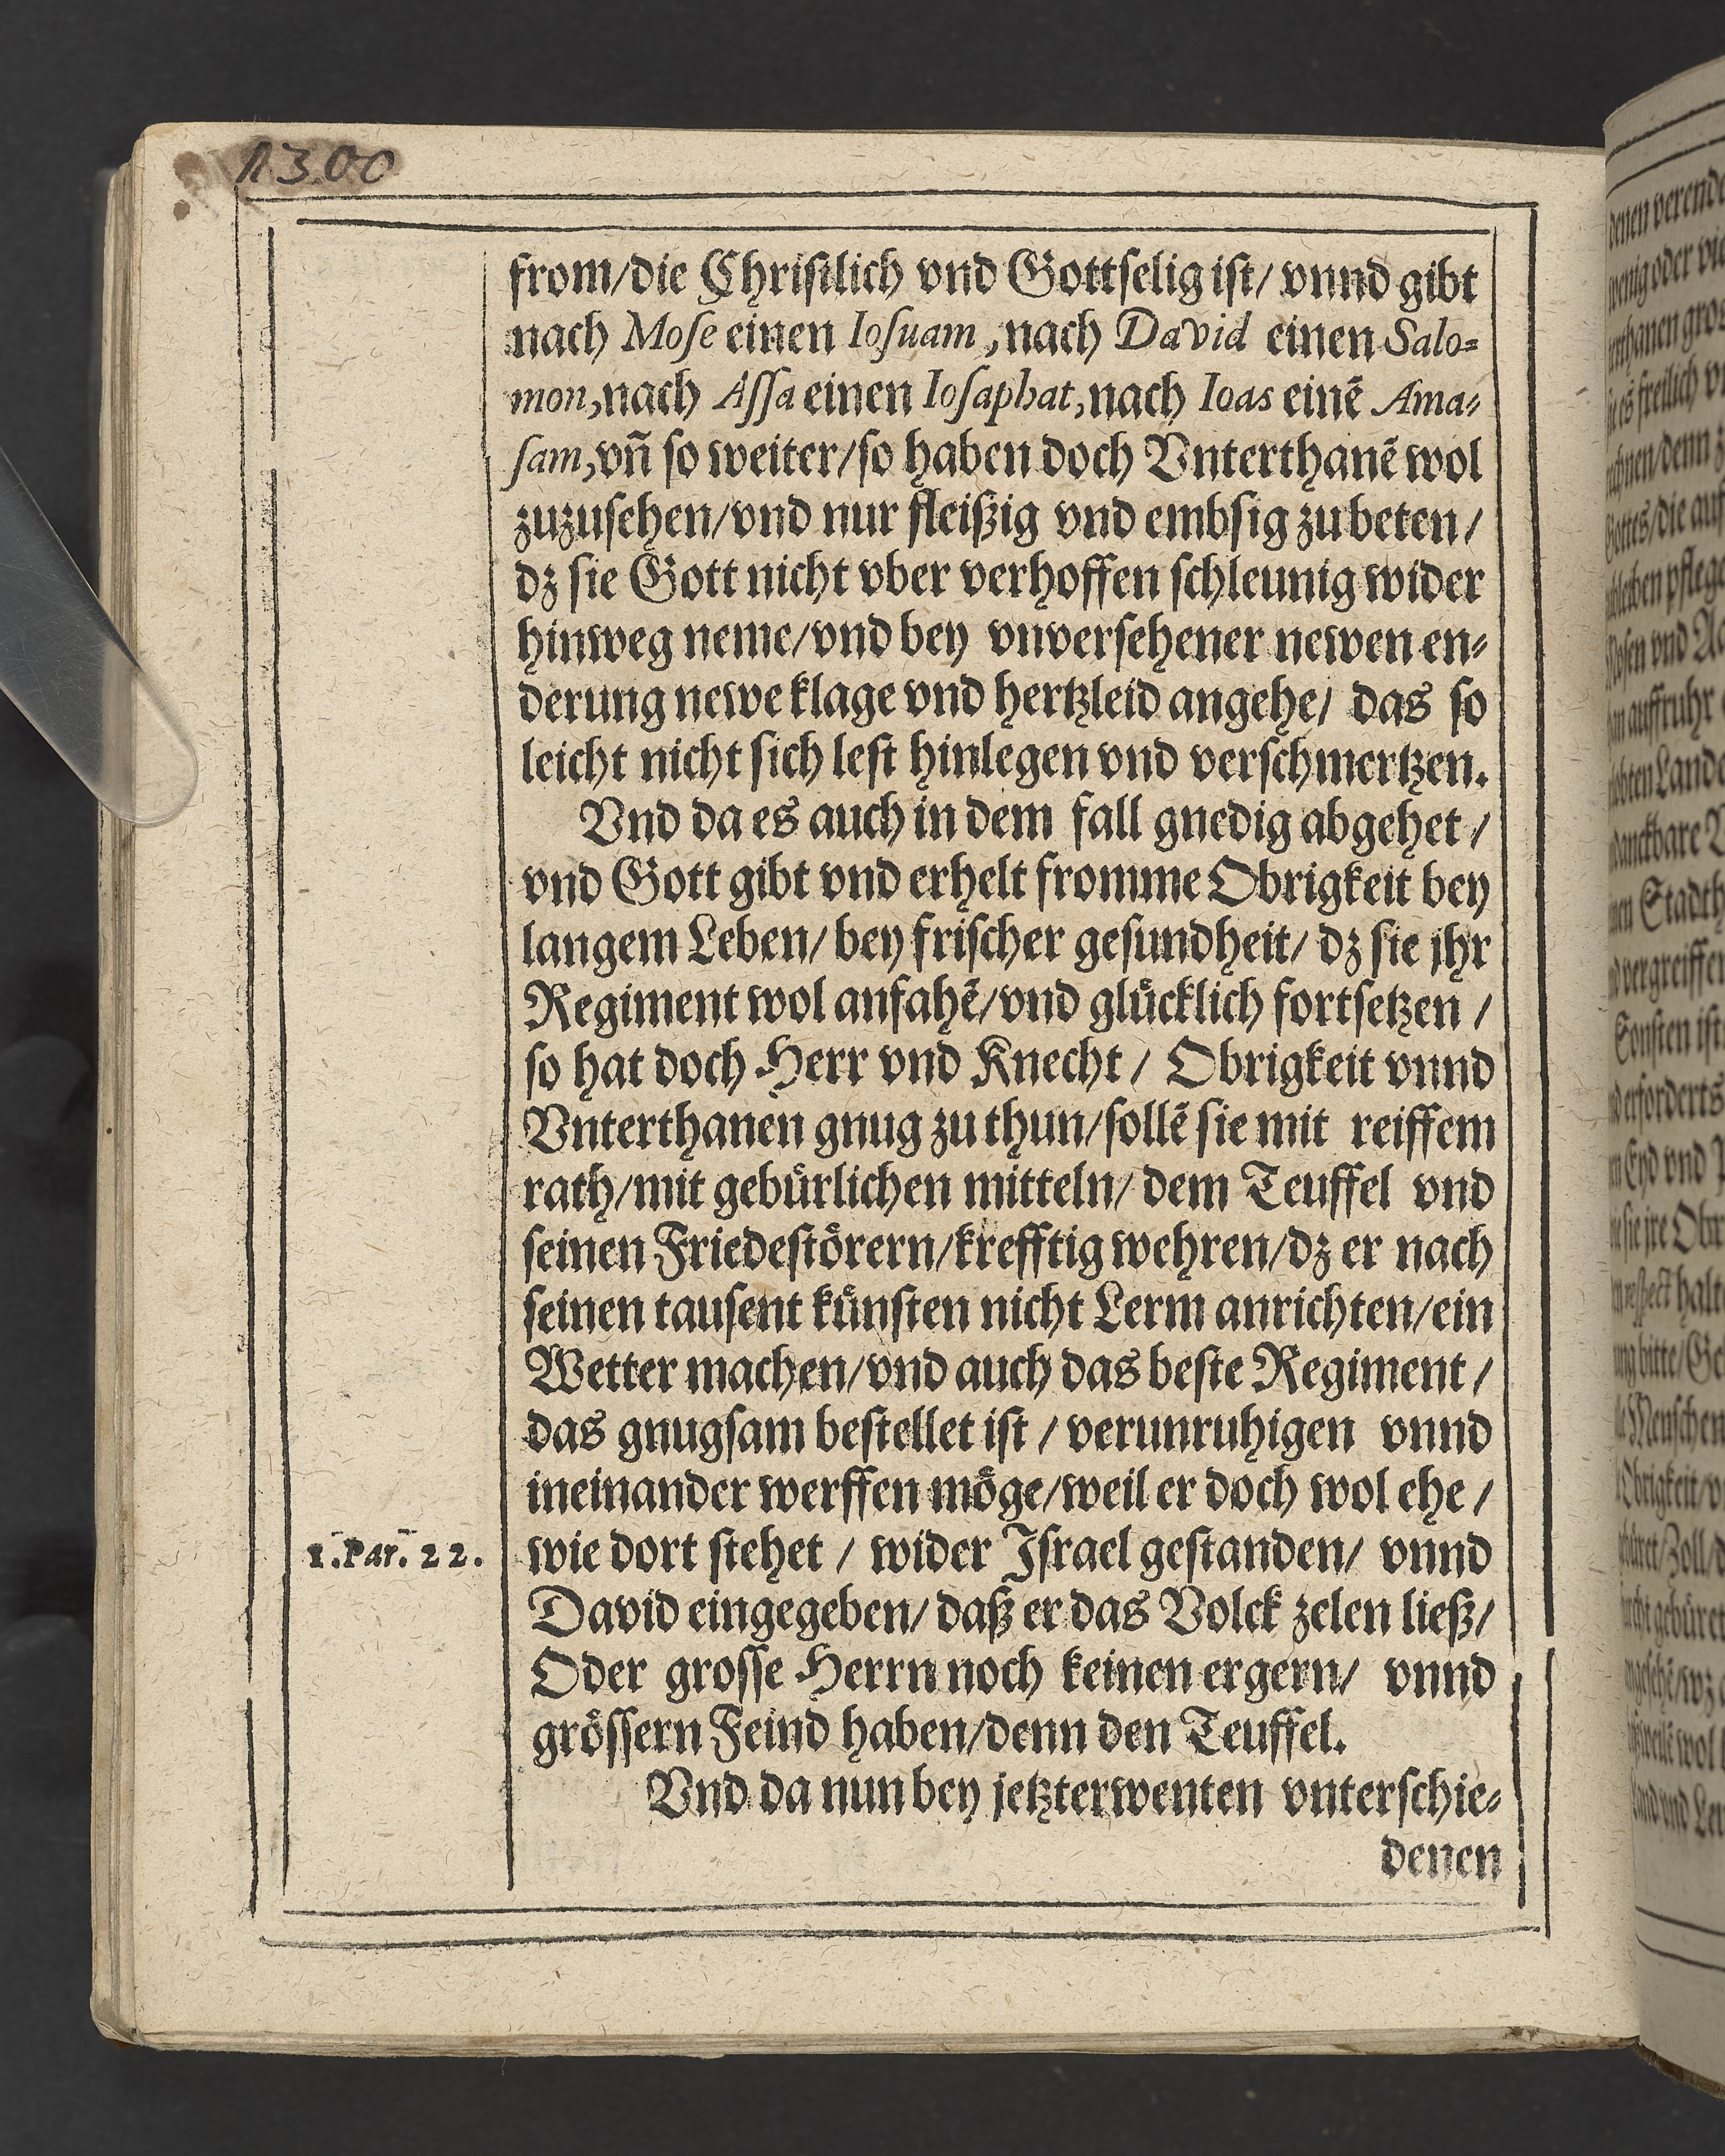 1300
from/die Chriſtlich vnd Gottſelig iſt/ vnnd gibt
nach Moſe einen Ioſuam, nach David einen Salo-
mon, nach Aſſa einen Ioſaphat, nach Ioas einẽ Ama-
ſam, vñ ſo weiter/ſo haben doch Vnterthanẽ wol
zuzuſehen/vnd nur fleißig vnd embſig zu beten/
dz ſie Gott nicht vber verhoffen ſchleunig wider
hinweg neme/vnd bey vnverſehener newen en-
derung newe klage vnd hertzleid angehe/ das ſo
leicht nicht ſich leſt hinlegen vnd verſchmertzen.
Vnd da es auch in dem fall gnedig abgehet/
vnd Gott gibt vnd erhelt fromme Obrigkeit bey
langem Leben/ bey friſcher geſundheit/ dz ſie jhr
Regiment wol anfahẽ/vnd gluͤcklich fortſetzen/
ſo hat doch Herr vnd Knecht/ Obrigkeit vnnd
Vnterthanen gnug zu thun/ſollẽ ſie mit reiffem
rath/mit gebuͤrlichen mitteln/ dem Teuffel vnd
ſeinen Friedeſtoͤrern/krefftig wehren/dz er nach
ſeinen tauſent kuͤnſten nicht Lerm anrichten/ein
Wetter machen/vnd auch das beſte Regiment/
das gnugſam beſtellet iſt/ verunruhigen vnnd
ineinander werffen moͤge/weil er doch wol ehe/
1. Par. 22.
wie dort ſtehet/ wider Iſrael geſtanden/ vnnd
David eingegeben/ daß er das Volck zelen ließ/
Oder groſſe Herrn noch keinen ergern/ vnnd
groͤſſern Feind haben/denn den Teuffel.
Vnd da nun bey jetzterwenten vnterſchie-
denen